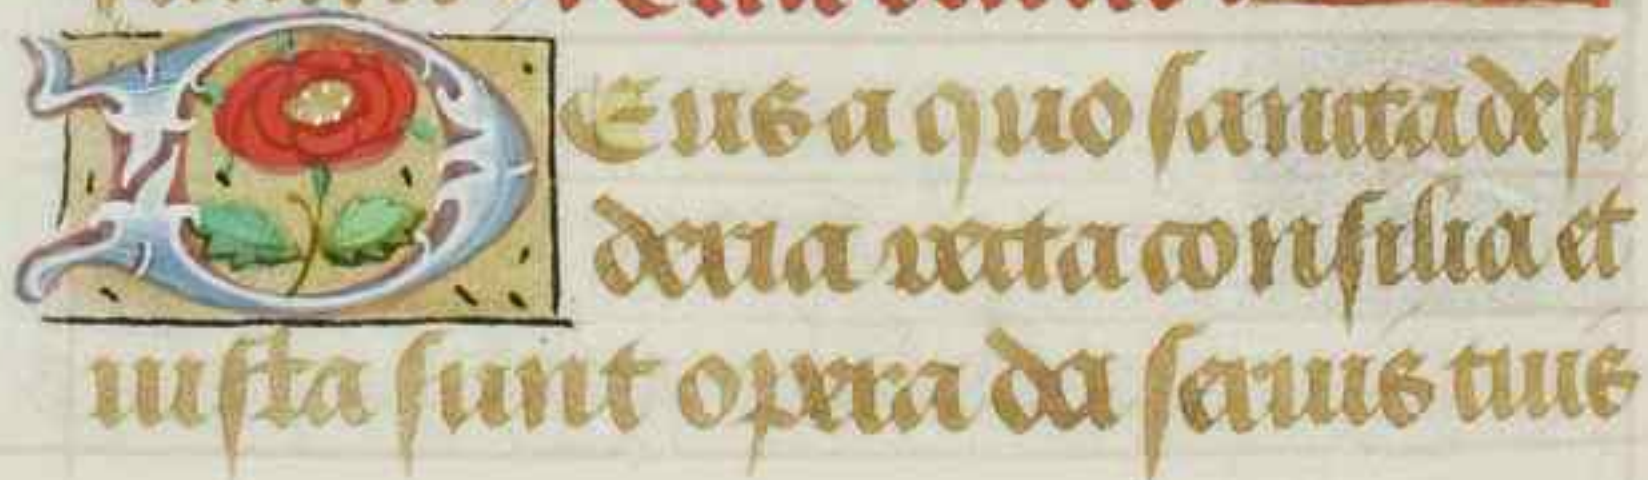 DEus a quo sancta desi
deria recta consilia et
iusta sunt opera da seruis tuis